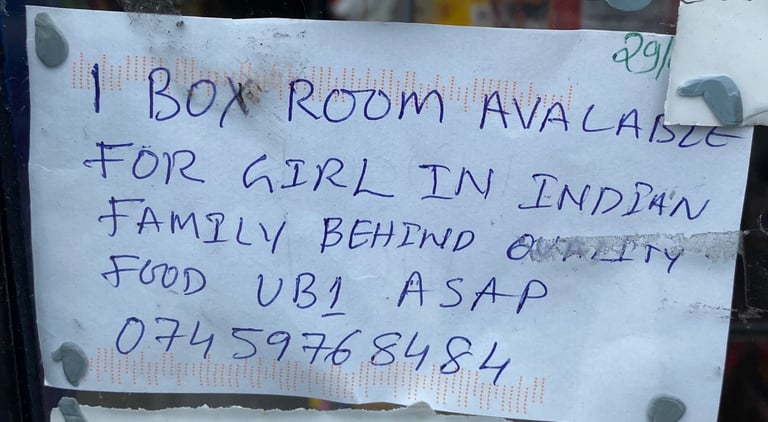 29/
1 BOX ROOM AVALABLE
FOR GIRL IN INDIAN
FAMILY BEHIND QUALITY
FOOD UB1 ASAP
07459768484